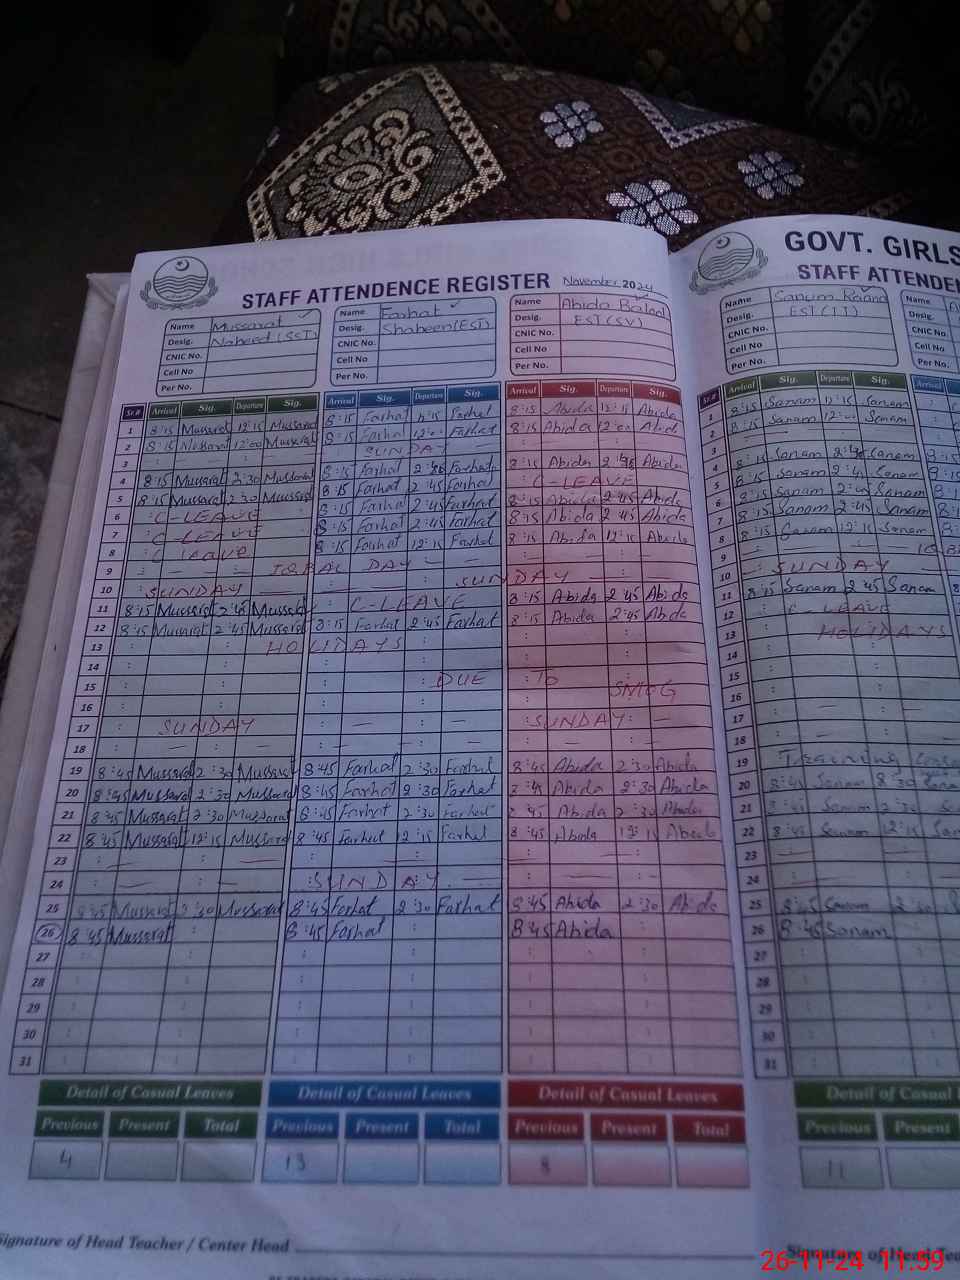 GOVT. GIRLS
STAFF ATTENDENCE REGISTER November, 2024
STAFF ATTENDEN
Name Mussarat
Desig. Naheed (SST)
CNIC No.
Cell No
Per No.
Name Farhat
Desig. Shaheen (EST)
CNIC No.
Cell No
Per No.
Name Abida
Desig. EST (SV)
CNIC No.
Cell No
Per No.
Name Sanum
Desig.
CNIC No.
Cell No
Per No.
Sr.# Arrival Sig. Departure Sig. Arrival Sig. Departure Sig. Arrival Sig. Departure Sig. Sr.# Arrival Sig. Departure Sig. Arrival
1 8:15 Mussarat 12:15 Mussarat 8:15 Farhat 12:15 Farhat 8:15 Abida 12:15 Abida 1 8:15 Sanam 12:15 Sanam
2 8:15 Mussarat 12:00 Mussarat 8:15 Farhat 12:00 Farhat 8:15 Abida 12:00 Abida 2 8:15 Sanam 12:00 Sanam
3 SUNDAY 3
4 8:15 Mussarat 2:30 Mussarat 8:15 Farhat Farhat 8:15 Abida Abida 4 8:15 Sanam Sanam 8:15
5 8:15 Mussarat 2:30 Mussarat 8:15 Farhat 2:45 Farhat C-LEAVE 5 8:15 Sanam 2:45 Sanam 8:15
6 C-LEAVE 8:15 Farhat 2:45 Farhat 8:15 Abida 2:45 Abida 6 8:15 Sanam 2:45 Sanam
7 C-LEAVE 8:15 Farhat 2:45 Farhat 8:15 Abida 2:45 Abida 7 8:15 Sanam 2:45 Sanam
8 C leave 8:15 Farhat 12:15 Farhat 8:15 Abida 12:15 Abida 8 8:15 Sanam 12:15 Sanam
9 IQBAL DAY 9
10 SUNDAY SUNDAY 10 SUNDAY
11 8:15 Mussarat 2:45 Mussarat C-LEAVE 8:15 Abida 2:45 Abida 11 8:15 Sanam 2:45 Sanam
12 8:15 Mussarat 2:45 Mussarat 8:15 Farhat 2:45 Farhat 8:15 Abida 2:45 Abida 12 C LEAVE
13 HOLIDAYS 13 HOLIDAYS
14
15 DUE TO SMOG 15
16 16
17 SUNDAY SUNDAY 17
18 18
19 8:45 Mussarat 2:30 Mussarat 8:45 Farhat 2:30 Farhat 8:45 Abida 2:30 Abida 19 Training
20 8:45 Mussarat 2:30 Mussarat 8:45 Farhat 2:30 Farhat 8:45 Abida 2:30 Abida 20 8:45 Sanam
21 8:45 Mussarat 2:30 Mussarat 8:45 Farhat 2:30 Farhat 8:45 Abida 2:30 Abida 21 8:45 Sanam 2:30
22 8:45 Mussarat 12:15 Mussarat 8:45 Farhat 12:15 Farhat 8:45 Abida 12:15 Abida 22 8:45 Sanam 12:15
23 23
24 SUNDAY 24
25 8:45 Mussarat 2:30 Mussarat 8:45 Farhat 2:30 Farhat 8:45 Abida 2:30 Abida 25 8:45 Sanam 2:30
26 8:45 Mussarat 8:45 Farhat 8:45 Abida 26 8:45 Sanam
27 27
28 28
29 29
30 30
31 31
Detail of Casual Leaves Detail of Casual Leaves Detail of Casual Leaves Detail of Casual
Previous Present Total Previous Present Total Previous Present Total Previous Present
4 13 8 11
Signature of Head Teacher / Center Head
Signature of Head Tea
26-11-24 11:59